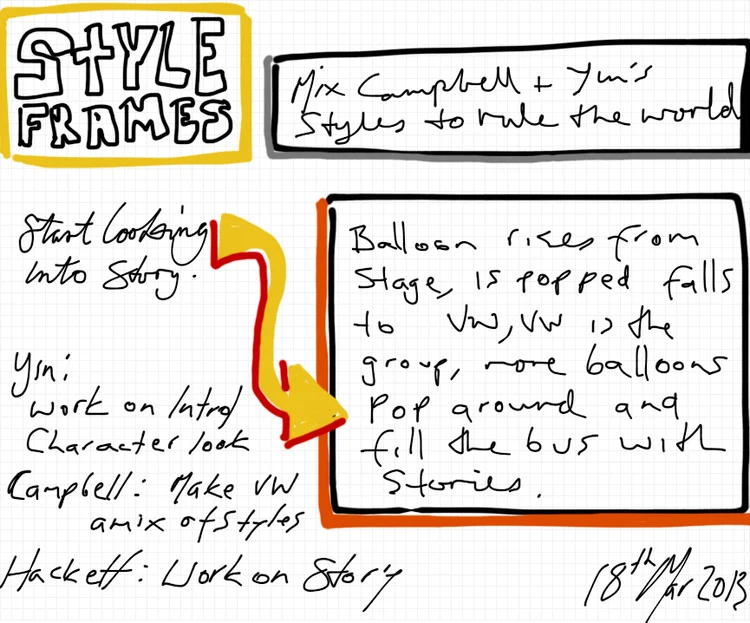 STYLE
FRAMES
Mix Campbell + Yin's
Styles to rule the world
Start looking
into Story.
Balloon rises from
Stage, is popped falls
to VW, VW is the
group, more balloons
Pop around and
fill the bus with
Stories.
Yin:
Work on Intro/
Character look
Campbell: Make VW
a mix of styles
Hackett: Work on Story
18th Mar 2013